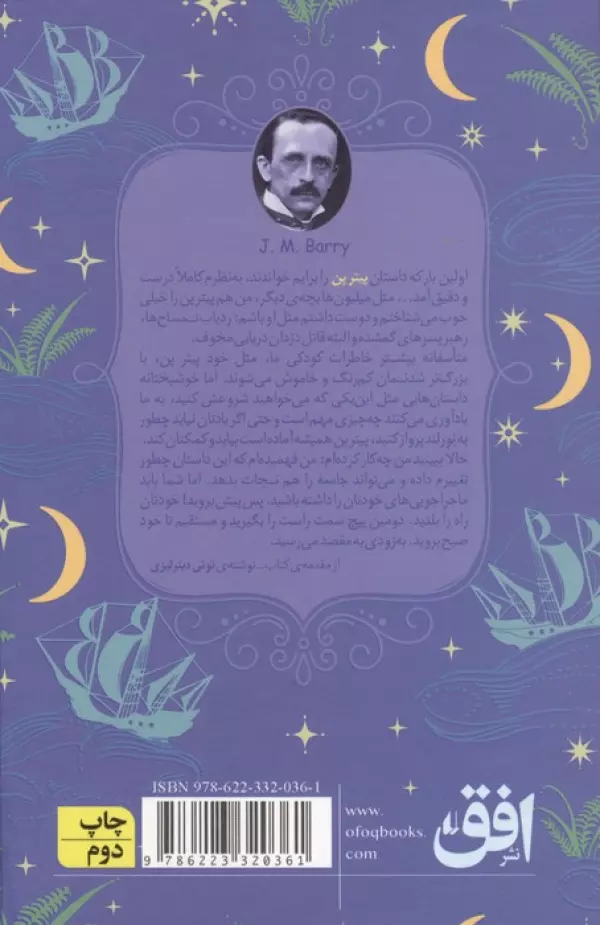 J. M. Barry
اولین بار که داستان پیتر پن را برایم خواندند، به‌نظرم کاملاً درست
و دقیق آمد... مثل میلیون‌ها بچه‌ی دیگر، من هم پیتر پن را خیلی
خوب می‌شناختم و دوست داشتم مثل او باشم: ردیاب تمساح‌ها،
رهبر پسرهای گمشده و البته قاتل دزدان دریایی مخوف.
متأسفانه بیشتر خاطرات کودکی ما، مثل خود پیتر پن، با
بزرگ‌تر شدنمان کم‌رنگ و خاموش می‌شوند. اما خوشبختانه
داستان‌هایی مثل این‌یکی که می‌خواهند شروعش کنید، به ما
یادآوری می‌کنند چه‌چیزی مهم است و حتی اگر یادتان نیاید چطور
به نورلند پرواز کنید، پیتر پن همیشه آماده است بیاید و کمکتان کند.
حالا ببینید من چه‌کار کرده‌ام: من فهمیده‌ام که این داستان چطور
تغییرم داده و می‌تواند جامعه را هم نجات بدهد. اما شما باید
ماجراجویی‌های خودتان را داشته باشید. پس پیش بروید! خودتان
راه را بلدید. دومین پیچ سمت راست را بگیرید و مستقیم تا خود
صبح بروید. به‌زودی به مقصد می‌رسید.
از مقدمه‌ی کتاب... نوشته‌ی تونی دیترلیزی
ISBN 978-622-332-036-1
9 786223 320361
چاپ
دوم
www.
ofoqbooks.
com
نشر افق